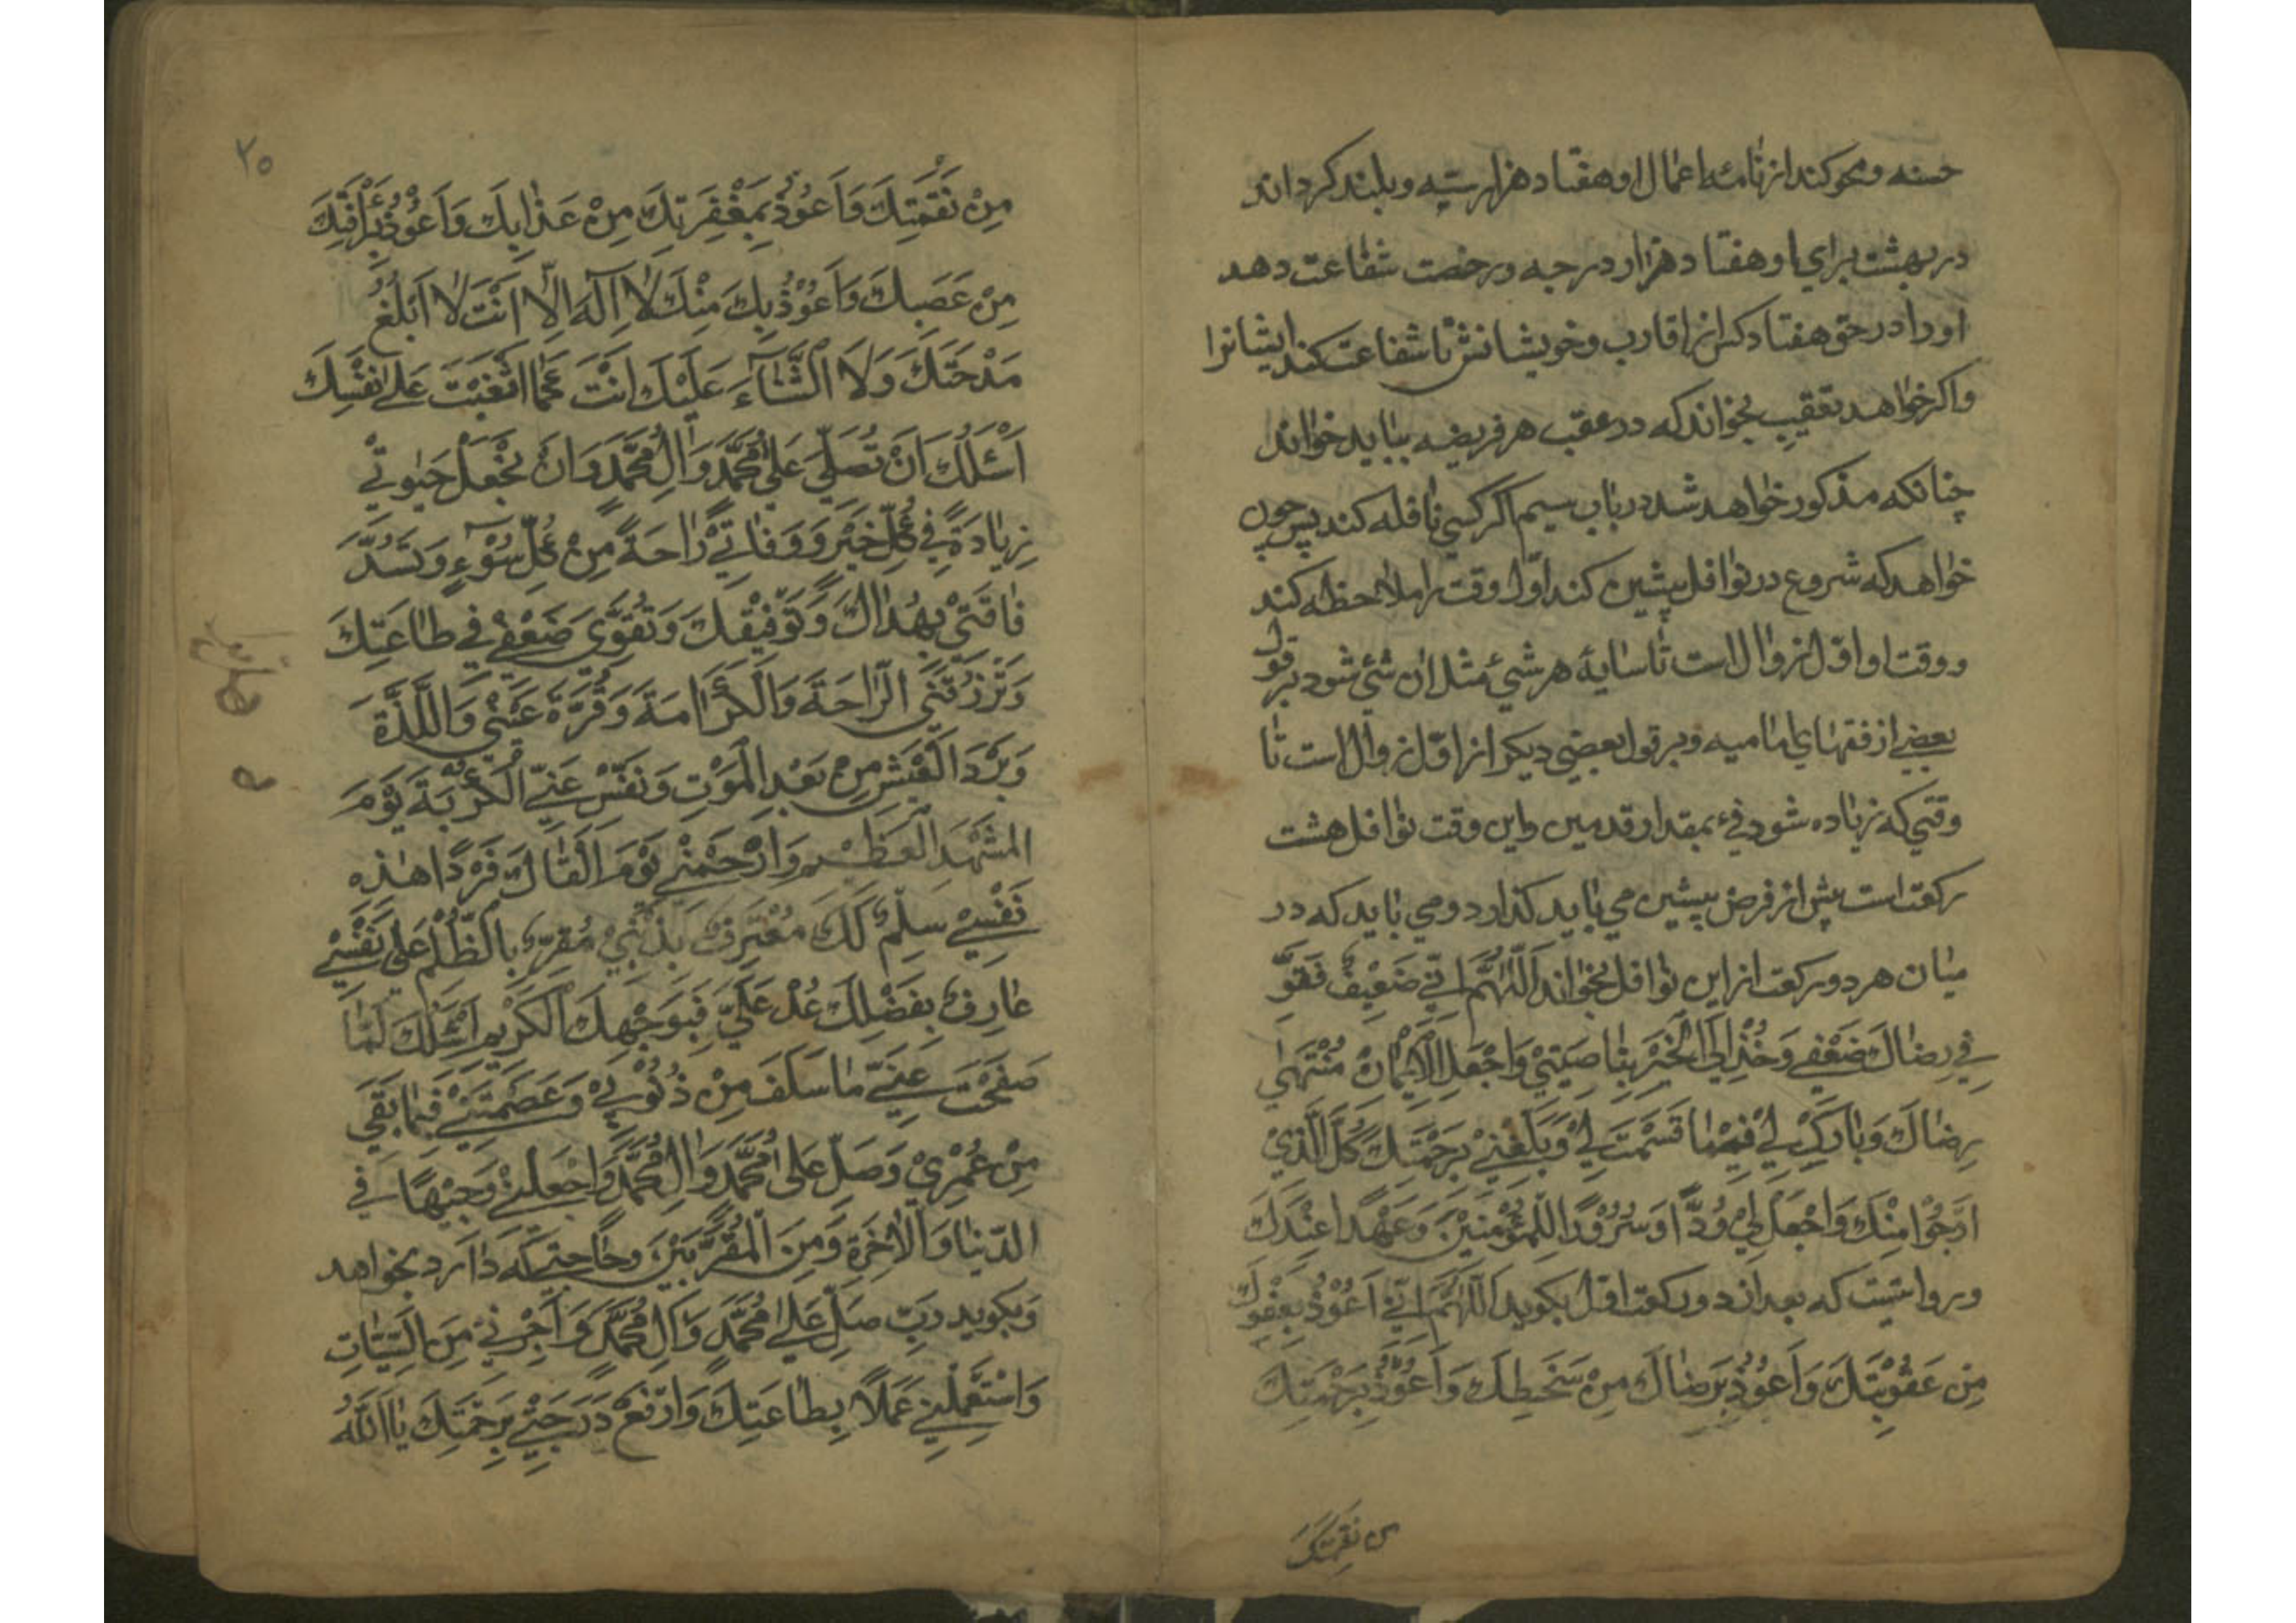 حسنه و محو کند از نامه اعمال او هفتاد هزار سیّه و بلند کرداند
در بهشت برای او هفتاد هزار درجه و رخصت شفاعت دهد
او را در حق هفتاد کس از اقارب و خویشانش تا شفاعت کند ایشانرا
و اکر خواهد تعقیب بخواند که در عقب هر فریضه بباید خواند
چنانکه مذکور خواهد شد در باب سیم اکر کسی نافله کند پس چون
خواهد که شروع در نوافل پیشین کند اوّل وقت را ملاحظه کند
و وقت او اوّل زوال است تا سایهٔ هر شیٔ مثل ان شیٔ شود بر قول
بعضی از فقهای امامیه و بر قول بعضی دیکر از اوّل زوال است تا
وقتی که زیاده شود فیء بمقدار قدمین و این وقت نوافل هشت
رکعت است پیش از فرض پیشین می باید کذارد و می باید که در
میان هر دو رکعت از این نوافل بخواند اَللّٰهُمَّ اِنّی ضَعِیْفٌ فَقَوِّ
فی رِضاكَ ضَعْفی وَخُذْ اِلَی الْخَیْرِ بِنٰاصِیَتِیْ وَاجْعَلِ الْاِیْمٰانَ مُنْتَهٰی
رِضٰاكَ وَبٰارِكْ لِیْ فیمٰا قَسَمْتَ لِیْ وَبَلِّغْنِیْ بِرَحْمَتِكَ كُلَّ الَّذِیْ
اَرْجُوْا مِنْكَ وَاجْعَلْ لِیْ وُدًّا وَسُرُوْرًا لِلْمُؤْمِنِیْنَ وَعَهْدًا عِنْدَكَ
و روایتست که بعد از دو رکعت اوّل بکوید اَللّٰهُمَّ اِنّی اَعُوْذُ بِعَفْوِكَ
مِنْ عُقُوْبَتِكَ وَاَعُوْذُ بِرِضٰاكَ مِنْ سَخَطِكَ وَاَعُوْذُ بِرَحْمَتِكَ
من نقمتك
٢٥
مِنْ نَقْمَتِكَ وَاَعُوْذُ بِمَغْفِرَتِكَ مِنْ عَذٰابِكَ وَاَعُوْذُ بِرَأْفَتِكَ
مِنْ غَضَبِكَ وَاَعُوْذُ بِكَ مِنْكَ لٰا اِلٰهَ اِلّٰا اَنْتَ لٰا اَبْلُغُ
مَدْحَتَكَ وَلَا الثَّنٰاۤءَ عَلَیْكَ اَنْتَ كَمٰا اَثْنَیْتَ عَلٰی نَفْسِكَ
اَسْئَلُكَ اَنْ تُصَلِّیَ عَلٰی مُحَمَّدٍ وَاٰلِ مُحَمَّدٍ وَاَنْ تَجْعَلَ حَیٰوتِیْ
زِیٰادَةً فِیْ كُلِّ خَیْرٍ وَ وَفٰاتِیْ رٰاحَةً مِنْ كُلِّ سُوْۤءٍ وَتَسُدَّ
فٰاقَتِیْ بِهُدٰاكَ وَتَوْفِیْقِكَ وَتُقَوِّیَ ضَعْفِیْ فِیْ طٰاعَتِكَ
وَتَرْزُقَنِی الرّٰاحَةَ وَالْكَرٰامَةَ وَقُرَّةَ عَیْنِیْ وَاللَّذَّةَ
وَبَرْدَ الْعَیْشِ مِنْ بَعْدِ الْمَوْتِ وَنَفِّسْ عَنِّی الْكُرْبَةَ یَوْمَ
الْمَشْهَدِ الْعَظِیْمِ وَارْحَمْنِیْ یَوْمَ اَلْقٰاكَ فَرْدًا هٰذِهِ
نَفْسِیْ سِلْمٌ لَكَ مُعْتَرِفٌ بِذَنْبِیْ مُقِرٌّ بِالظُّلْمِ عَلٰی نَفْسِیْ
عٰارِفٌ بِفَضْلِكَ عُدْ عَلَیَّ فَبِوَجْهِكَ الْكَرِیْمِ اَسْئَلُكَ لَمّٰا
صَفَحْتَ عَنِّیْ مٰا سَلَفَ مِنْ ذُنُوْبِیْ وَعَصَمْتَنِیْ فِیْمٰا بَقِیَ
مِنْ عُمْرِیْ وَصَلِّ عَلٰی مُحَمَّدٍ وَاٰلِ مُحَمَّدٍ وَاجْعَلْنِیْ وَجِیْهًا فِی
الدُّنْیٰا وَالْاٰخِرَةِ وَمِنَ الْمُقَرَّبِیْنَ و حاجتی که دارد بخواهد
و بکوید رَبِّ صَلِّ عَلٰی مُحَمَّدٍ وَاٰلِ مُحَمَّدٍ وَاَجِرْنِیْ مِنَ السَّیِّئٰاتِ
وَاسْتَعْمِلْنِیْ عَمَلًا بِطٰاعَتِكَ وَارْفَعْ دَرَجَتِیْ بِرَحْمَتِكَ یٰا اَللّٰهُ